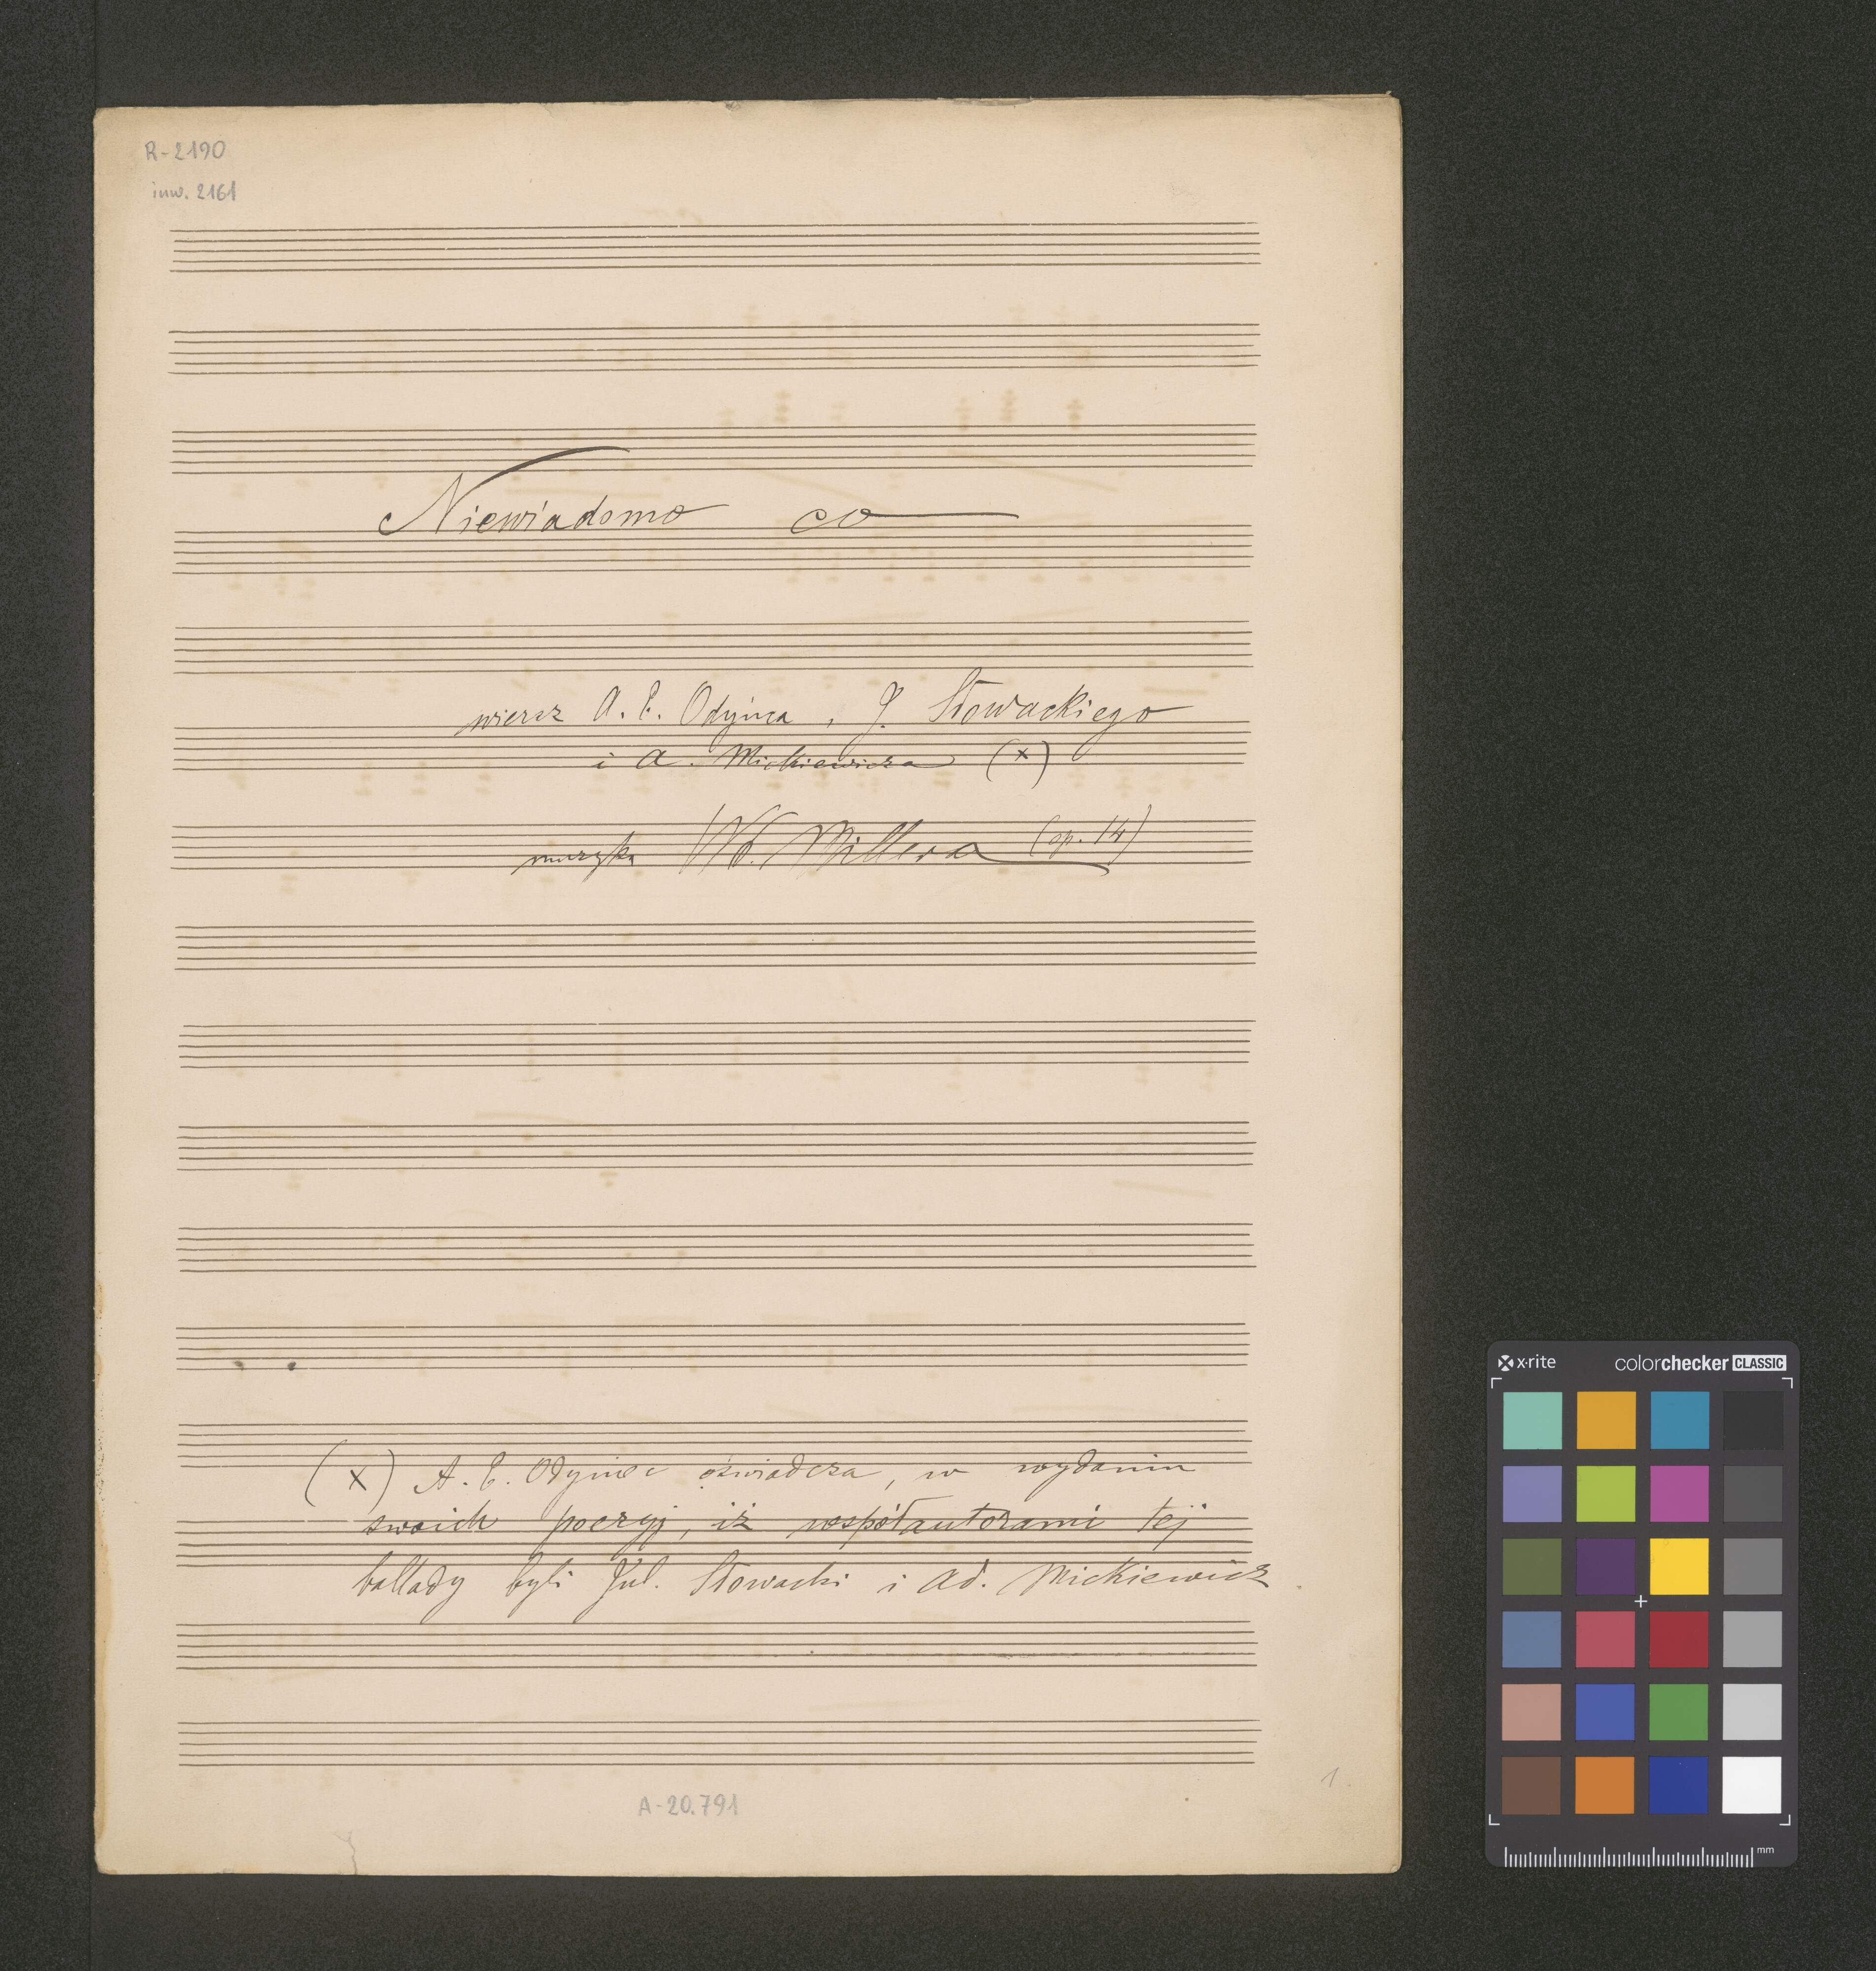 R-2190
inw. 2161
Niewiadomo co
wiersz A. E. Odyńca, J. Słowackiego
i A. Mickiewicza (x)
muzyka Wł. Millera (op. 14)
(x) A. E. Odyniec oświadcza, w wydaniu
swoich poezyj, iż współautorami tej
ballady byli Jul. Słowacki i Ad. Mickiewicz.
A-20.791
1.
x-rite colorchecker CLASSIC
mm